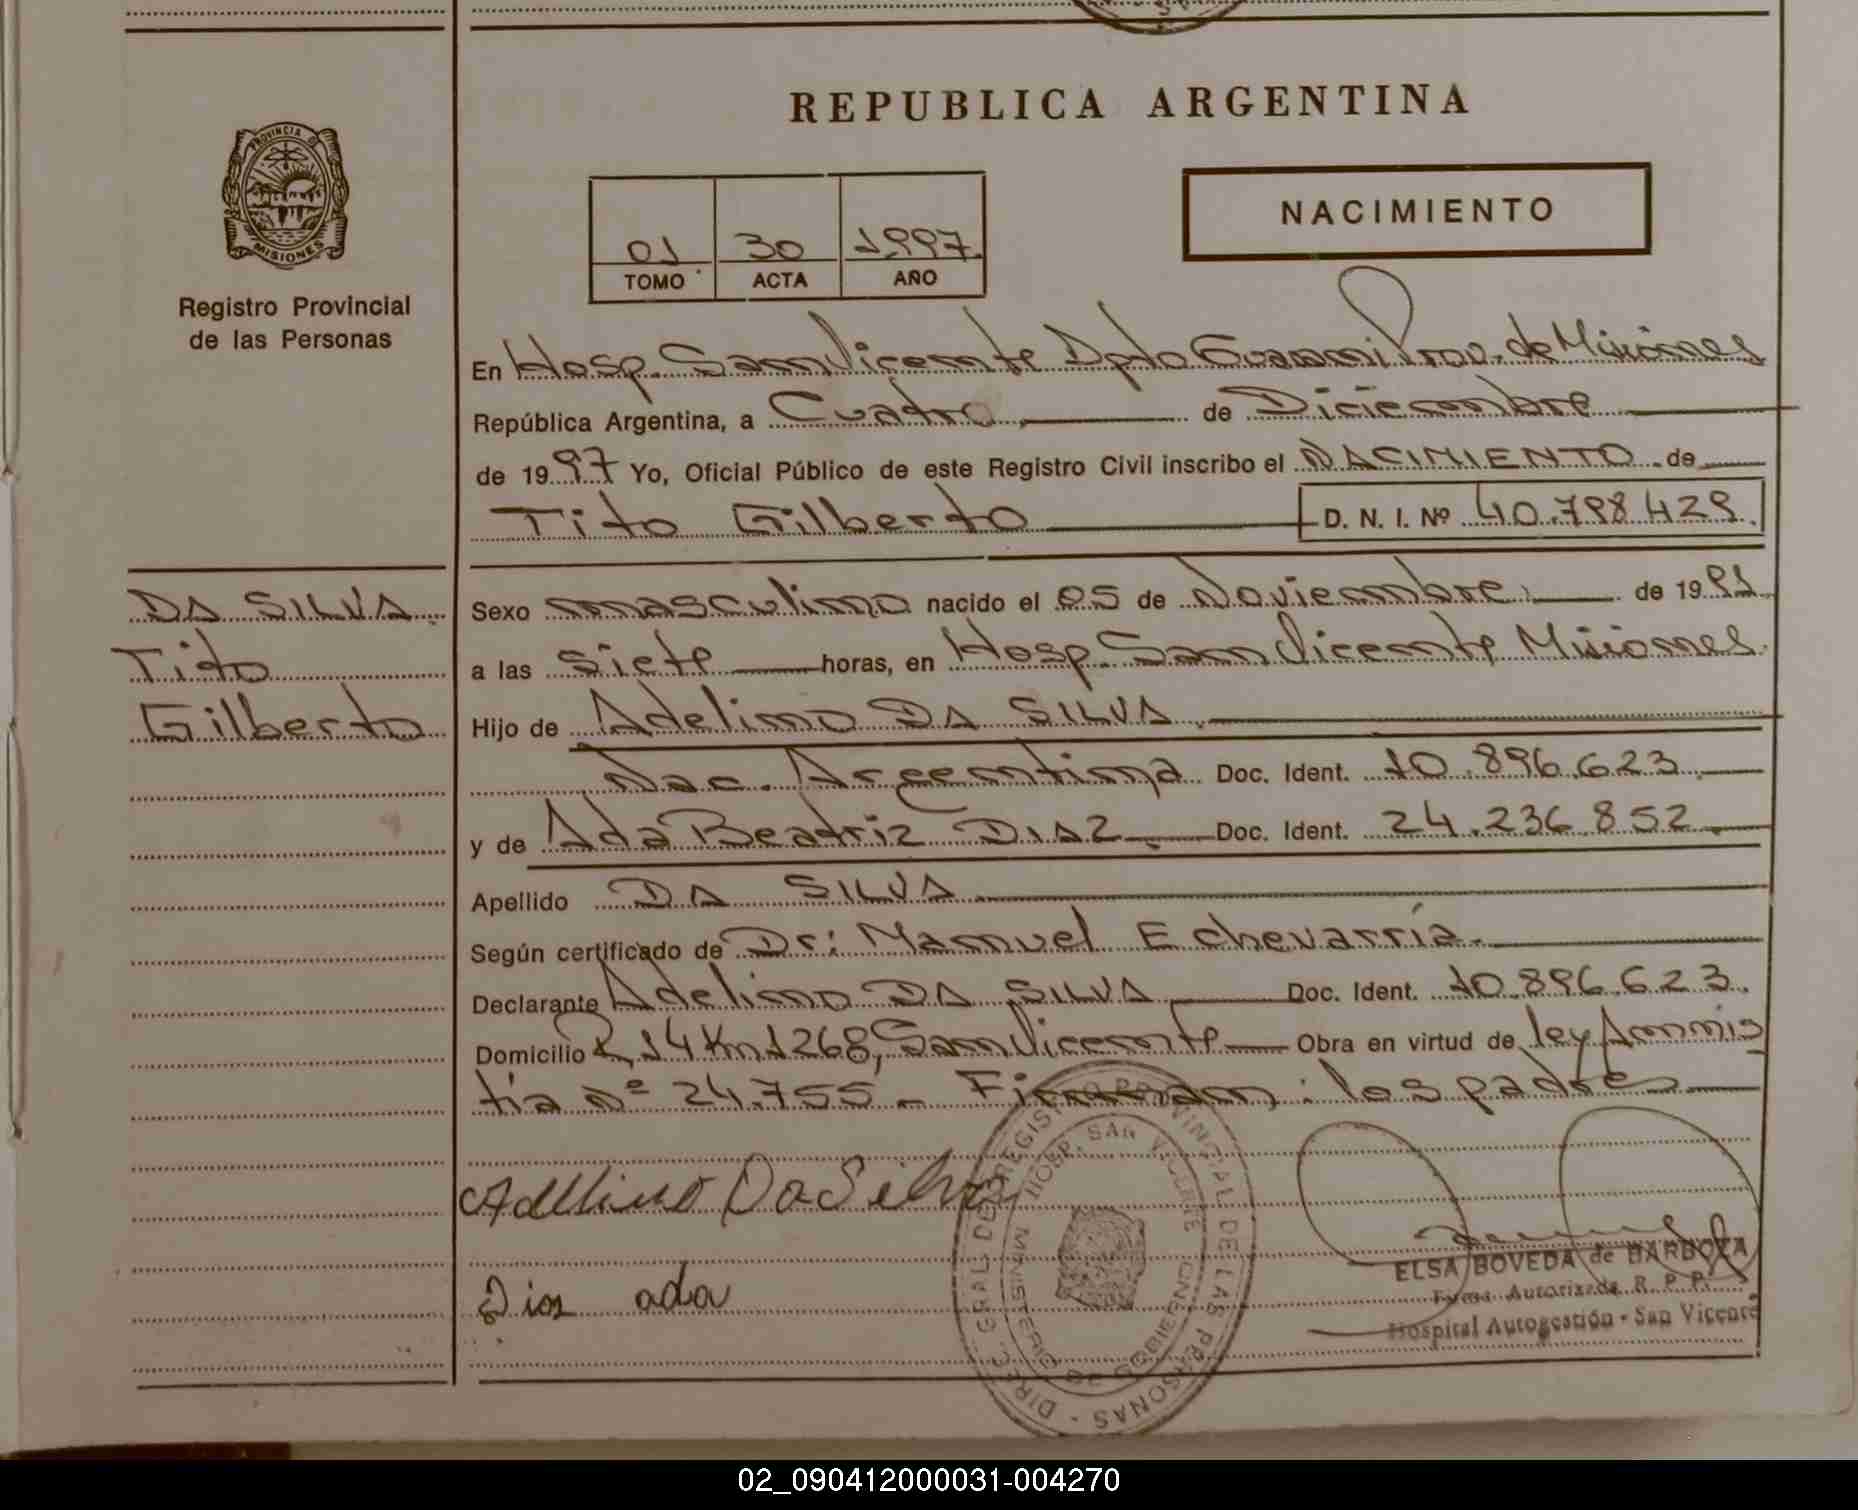 REPUBLICA ARGENTINA
PROVINCIA D
MISIONES
Registro Provincial
de las Personas
01 30 1997
TOMO ACTA AÑO
NACIMIENTO
En Hosp. San Vicente Dpto Guarani Prov. de Misiones
República Argentina, a Cuatro de Diciembre
de 1997 Yo, Oficial Público de este Registro Civil inscribo el NACIMIENTO de
Tito Gilberto D. N. I. Nº 40.798.429
DA SILVA
Tito
Gilberto
Sexo masculino nacido el 05 de Noviembre de 1991
a las siete horas, en Hosp. San Vicente Misiones
Hijo de Adelino DA SILVA
Nac. Argentina Doc. Ident. 10.896.623
y de Ada Beatriz DIAZ Doc. Ident. 24.236.852
Apellido DA SILVA
Según certificado de Dr: Manuel Echevarría
Declarante Adelino DA SILVA Doc. Ident. 10.896.623
Domicilio R 14 Km 1268, San Vicente Obra en virtud de ley Amnis
tia Nº 24.755 - Firman: los padres
Adelino Da Silva
Dias ada
DIREC. GRAL. DE REGISTRO PROVINCIAL DE LAS PERSONAS
HOSP. SAN VICENTE
MINISTERIO DE GOBIERNO
ELSA BOVEDA de BARBOZA
Firma Autorizada R. P. P.
Hospital Autogestión - San Vicente
02_090412000031-004270